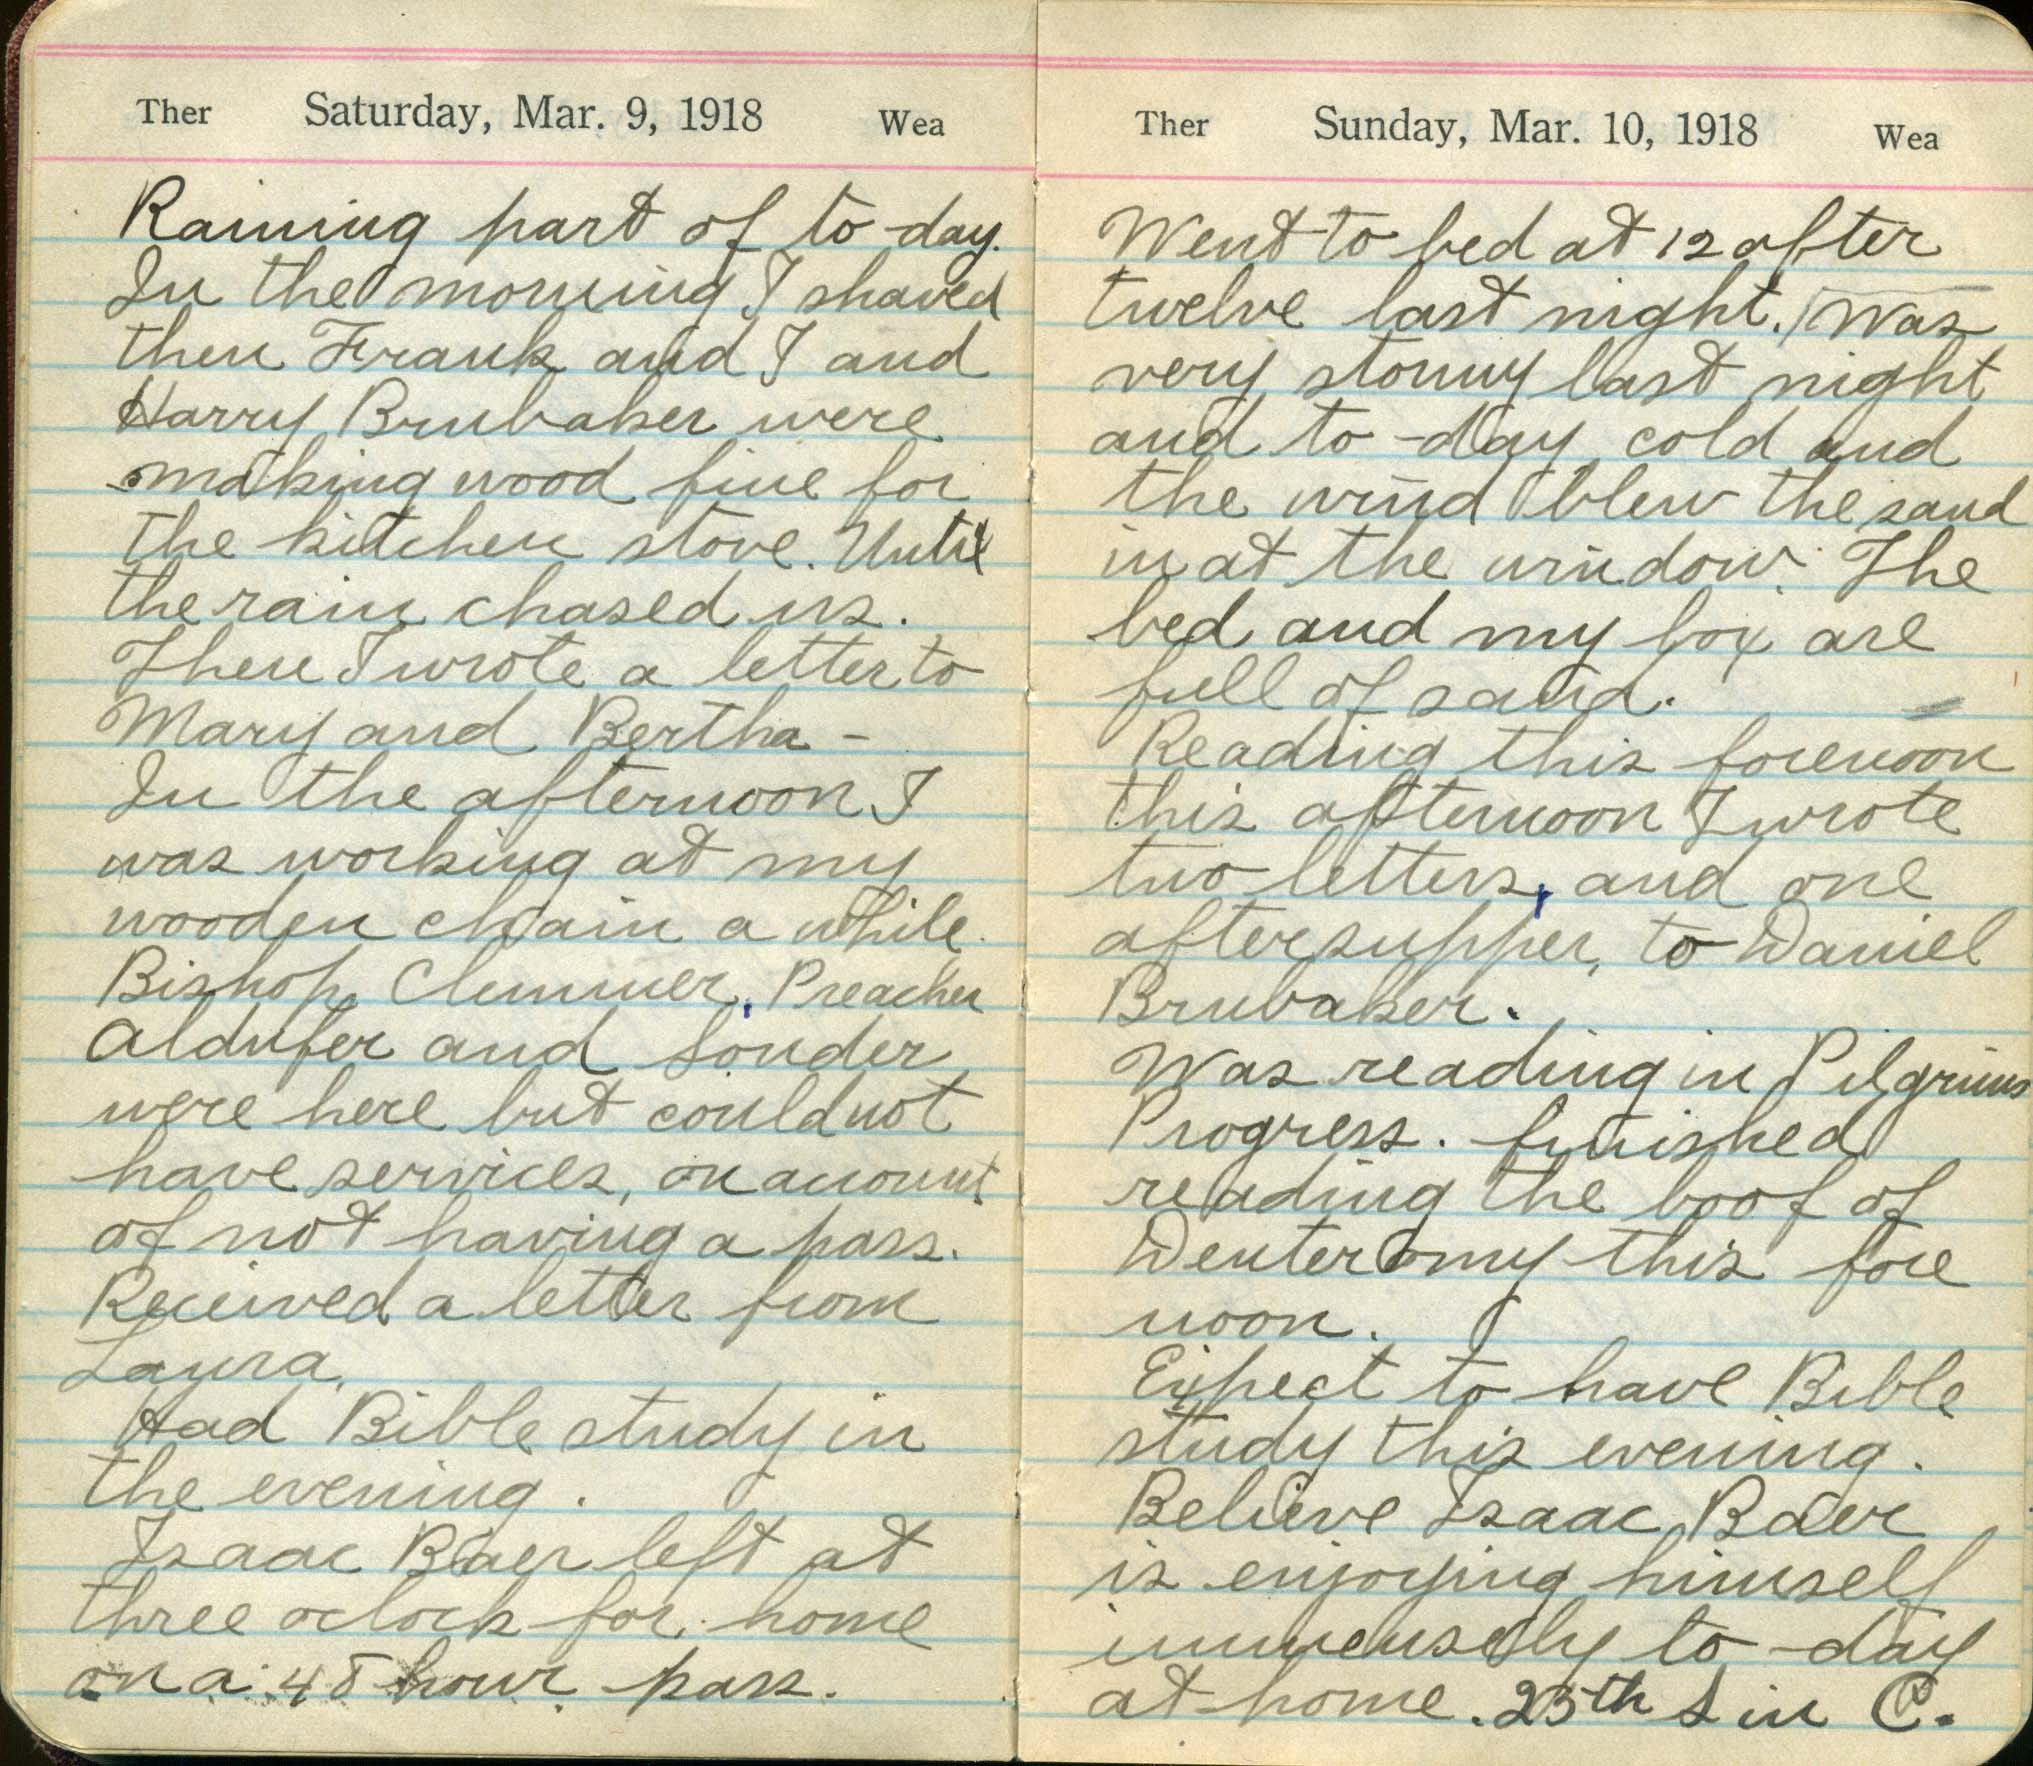 Ther Saturday, Mar. 9, 1918 Wea
Raining part of to-day.
In the morning I shaved
then Frank and I and
Harry Brubaker were
making wood fine for
the kitchen stove. Until
the rain chased us.
Then I wrote a letter to
Mary and Bertha -
In the afternoon I
was working at my
wooden chain a while.
Bishop Clemmer, Preacher
Aldufer and Souder
were here but could not
have services, on account
of not having a pass.
Received a letter from
Laura.
Had Bible study in
the evening.
Isaac Baer left at
three oclock for home
on a 48 hour pass.
Ther Sunday, Mar. 10, 1918 Wea
Went to bed at 12 after
twelve last night. Was
very stormy last night
and to-day cold and
the wind blew the sand
in at the window. The
bed and my box are
full of sand.
Reading this forenoon
this afternoon I wrote
two letters, and one
after supper, to Daniel
Brubaker.
Was reading in Pilgrims
Progress. finished
reading the boof of
Deuteromy this fore
noon.
Expect to have Bible
study this evening.
Believe Isaac Baer
is enjoying himself
immensely to-day
at home. 25th S in C.